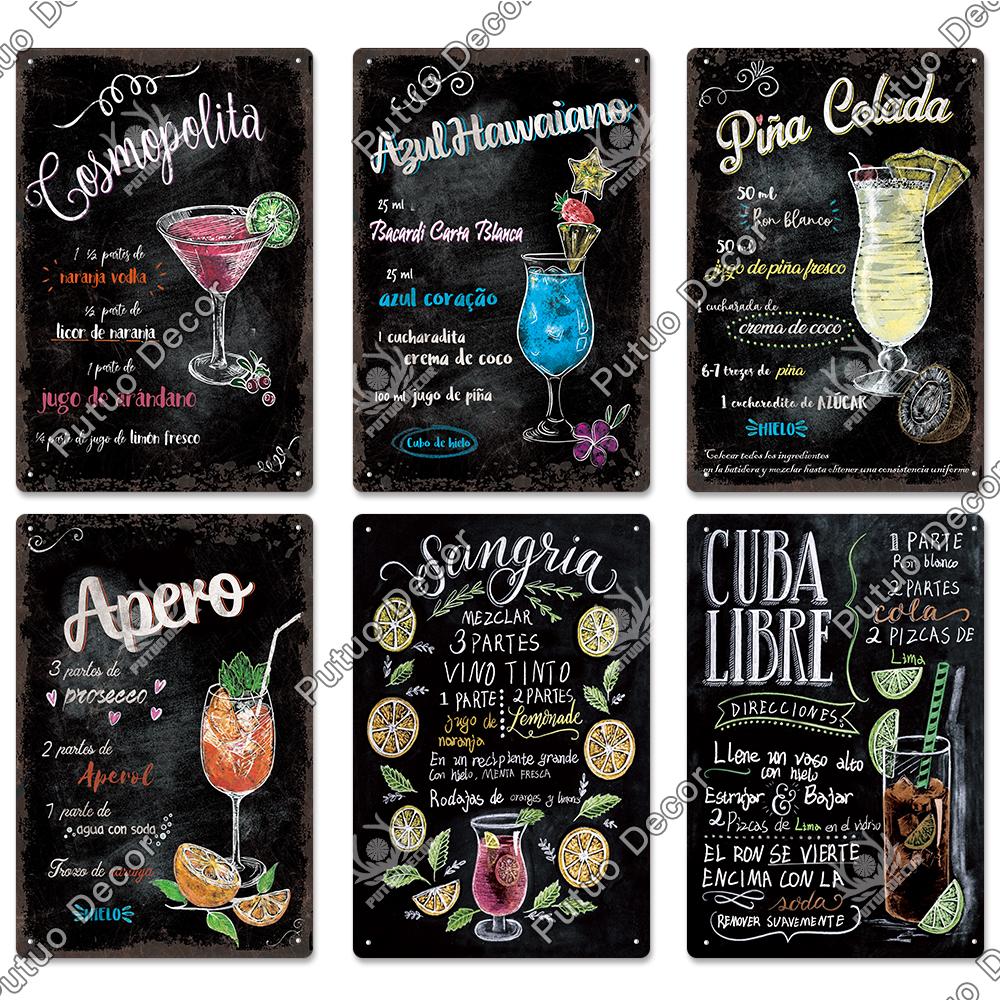 Cosmopolita
1 ½ partes de
naranja vodka
½ parte de
licor de naranja
1 parte de
jugo de arándano
¼ parte de jugo de limón fresco
Azul Hawaiano
25 ml
Bacardi Carta Blanca
25 ml
azul coração
1 cucharadita
crema de coco
100 ml jugo de piña
Cubo de hielo
Piña Colada
50 ml
Ron blanco
50 ml
jugo de piña fresco
1 cucharada de
crema de coco
6-7 trozos de piña
1 cucharadita de AZUCAR
HIELO
*Colocar todos los ingredientes
en la batidora y mezclar hasta obtener una consistencia uniforme
Apero
3 partes de
prosecco
2 partes de
Aperol
1 parte de
agua con soda
Trozo de
HIELO
Sangria
MEZCLAR
3 PARTES
VINO TINTO
1 PARTE
jugo de
naranja
2 PARTES
Lemonade
En un recipiente grande
con hielo, MENTA FRESCA
Rodajas de oranges y limons
CUBA
LIBRE
1 PARTE
Ron blanco
2 PARTES
cola
2 PIZCAS DE
Lima
DIRECCIONES:
Llene un vaso alto
con hielo
Estrujar & Bajar
2 Pizcas de Lima en el vidrio
EL RON SE VIERTE
ENCIMA CON LA
soda
REMOVER SUAVEMENTE
Putuo Decor